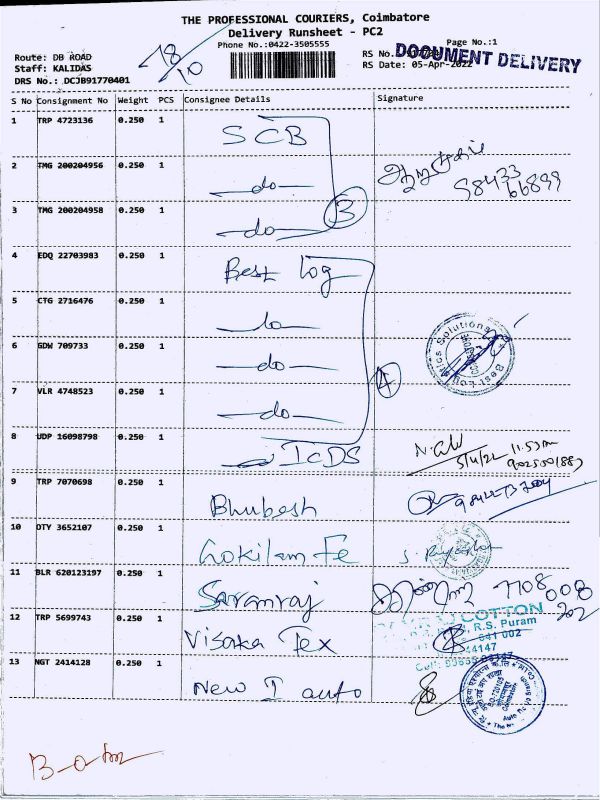 THE PROFESSIONAL COURIERS, Coimbatore
Delivery Runsheet - PC2
Phone No.:0422-3505555
Page No.:1
Route: DB ROAD
Staff: KALIDAS
DRS No.: DCJB91770401
18/10
RS No.
RS Date: 05-Apr-2022
DOCUMENT DELIVERY
S No Consignment No Weight PCS Consignee Details Signature
1 TRP 4723136 0.250 1 SCB
2 TMG 200204956 0.250 1 -do-
98433
66899
3 TMG 200204958 0.250 1 -do-
3
4 EDQ 22703983 0.250 1 Best log
5 CTG 2716476 0.250 1 -do-
6 GDW 709733 0.250 1 -do-
Best Logistics Solutions
4
7 VLR 4748523 0.250 1 -do-
8 UDP 16098798 0.250 1 ICDS
5/4/22 11.53am
9 TRP 7070698 0.250 1 Bhubesh
10 OTY 3652107 0.250 1 Gokilam Fe
11 BLR 620123197 0.250 1 Saranraj
7708 008
202
COTTON
R.S. Puram
641 002
12 TRP 5699743 0.250 1 Visaka Tex
44147
13 NGT 2414128 0.250 1 New I auto